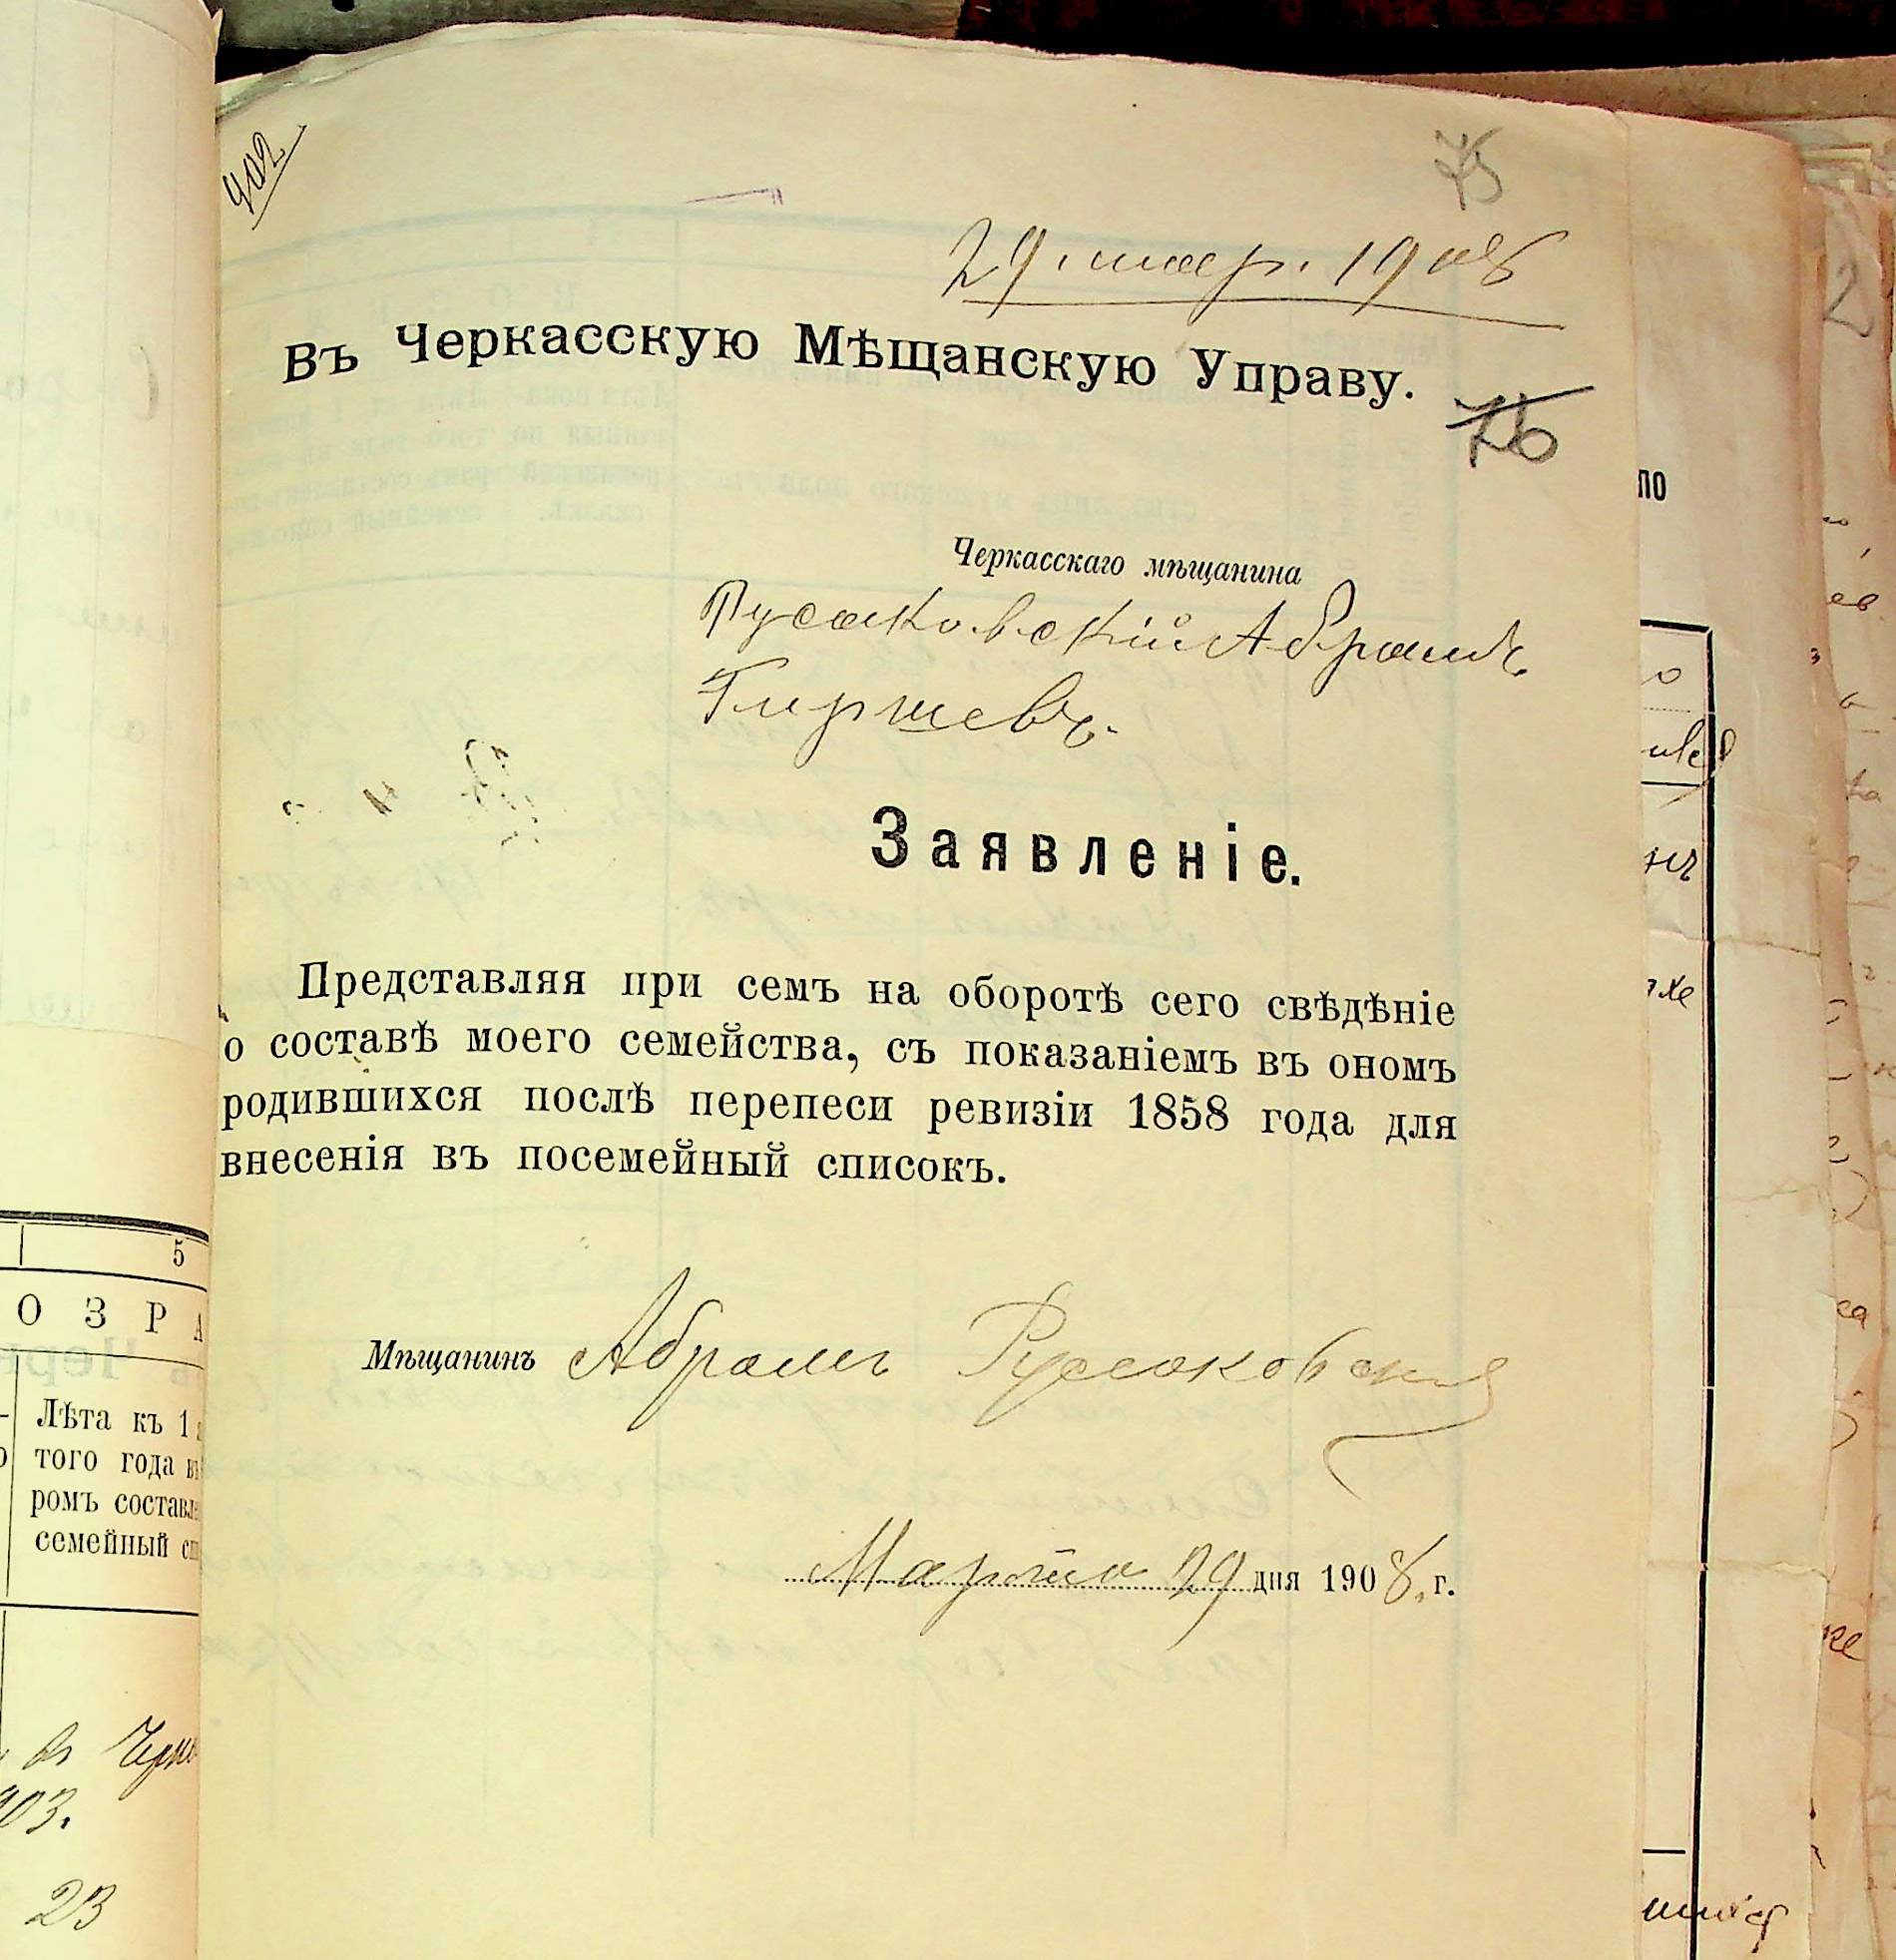 402
75
29. мар. 1908
Въ Черкасскую Мѣщанскую Управу.
76
Черкасскаго мѣщанина
Русаковскій Абрамъ
Гиршевъ.
Заявленіе.
Представляя при семъ на оборотѣ сего свѣдѣніе
о составѣ моего семейства, съ показаніемъ въ ономъ
родившихся послѣ перепеси ревизіи 1858 года для
внесенія въ посемейный списокъ.
Мѣщанинъ Абрамъ Русаковскій
Марта 29 дня 1908. г.
5
ОЗРА
Лѣта къ 1
того года
ромъ составл
семейный
903.
23
по
2